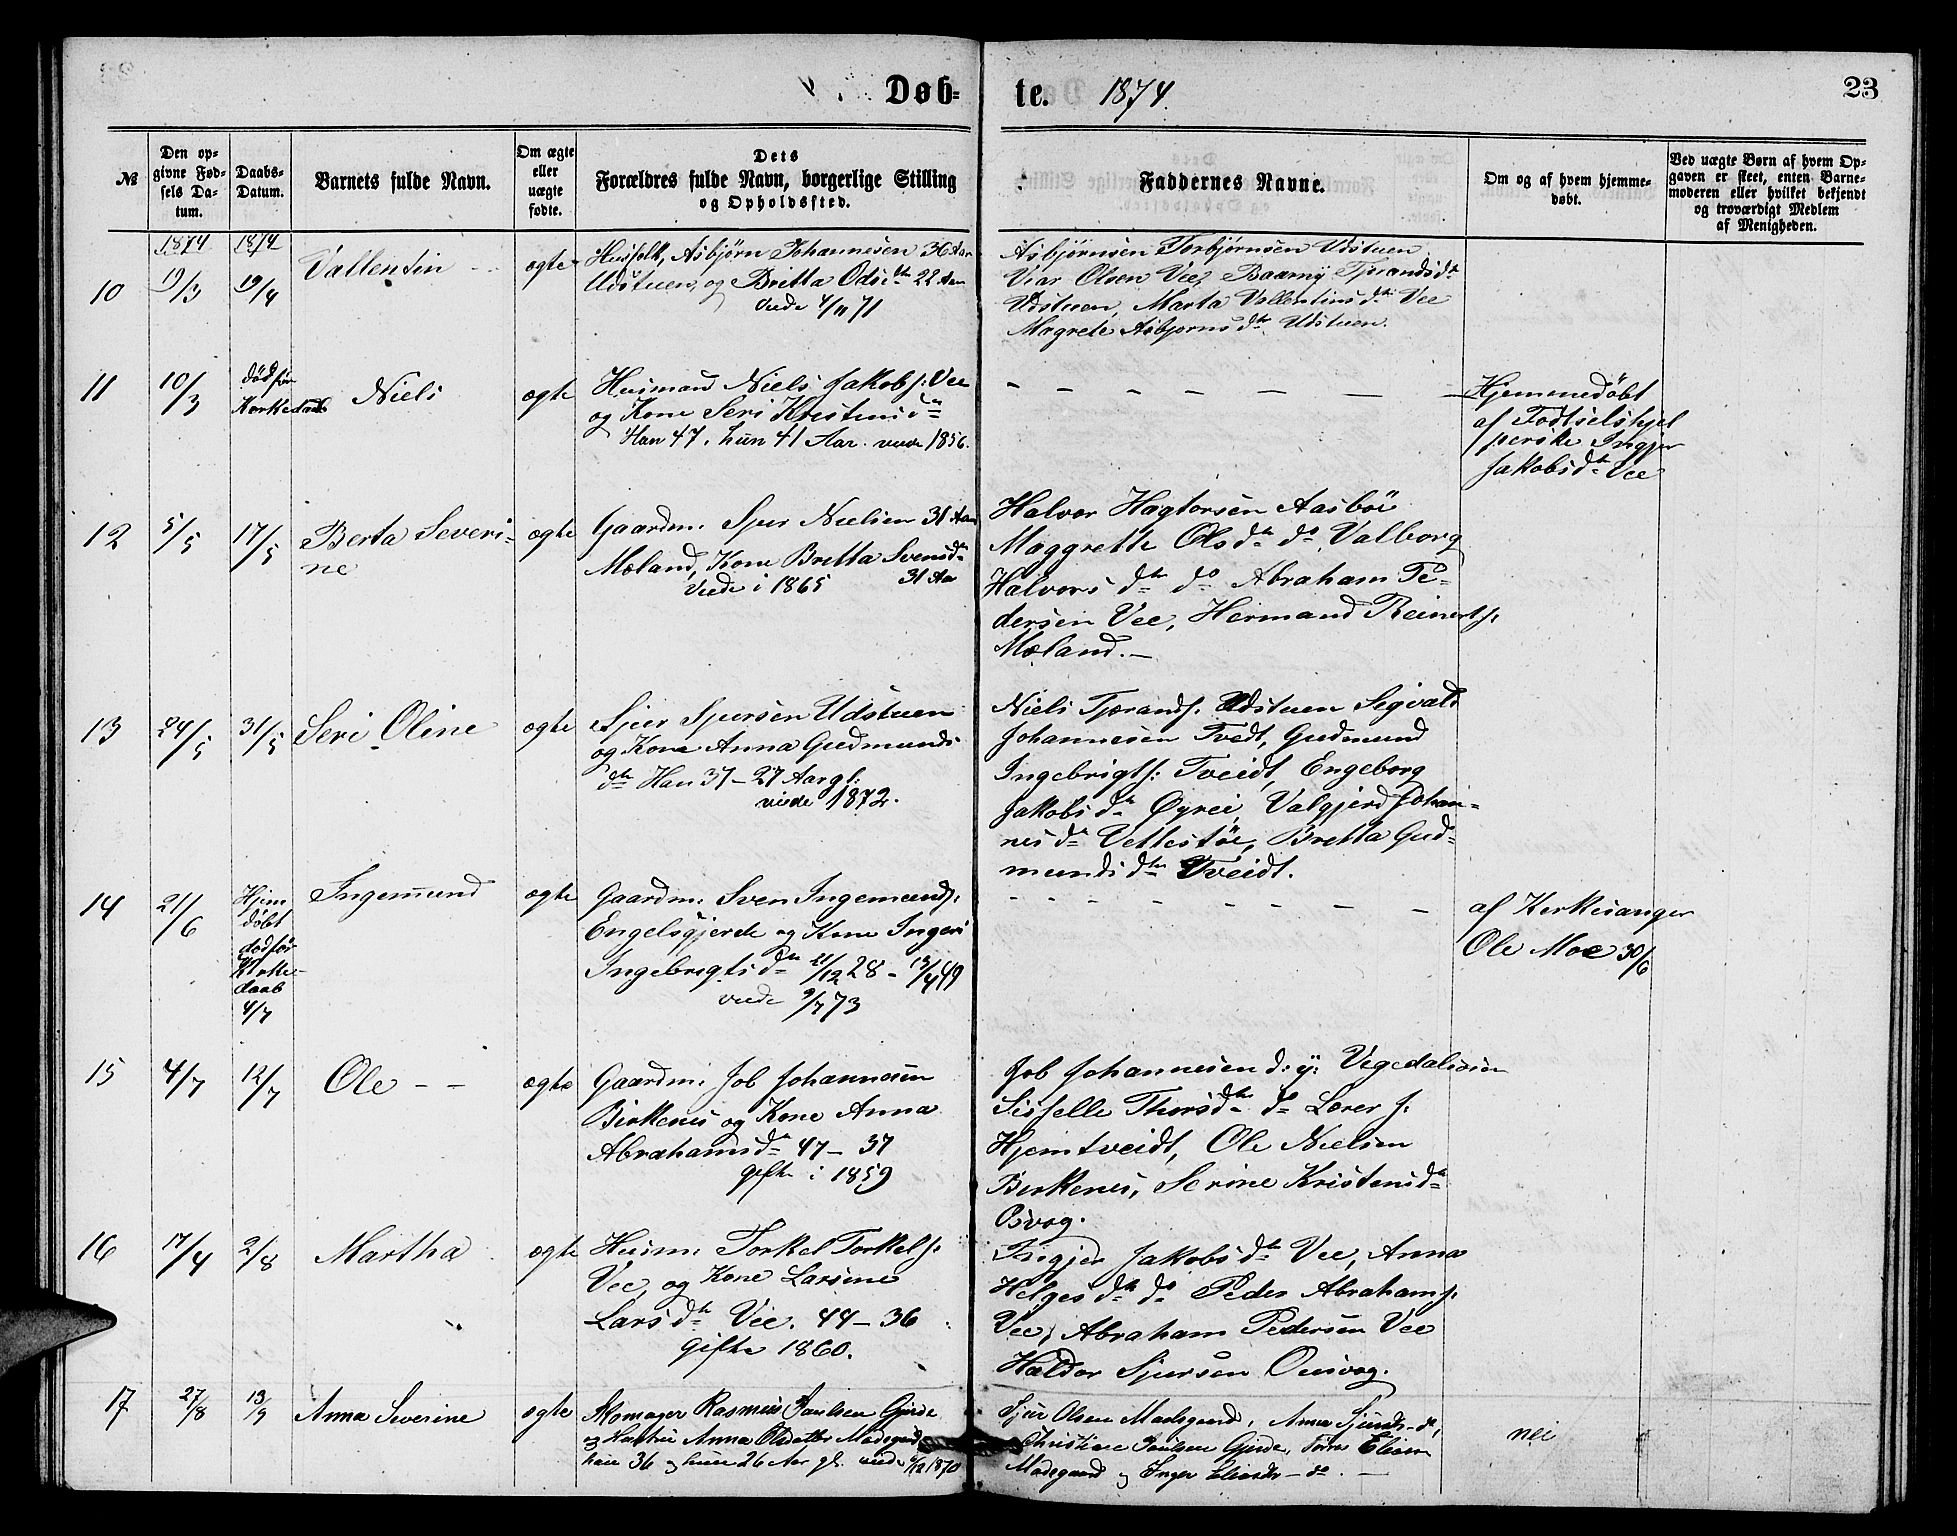 Døb-
te. 1874.
23
№
Den op-
givne Fød-
sels Da-
tum.
Daabs-
Datum.
Barnets fulde Navn.
Om ægte
eller
uægte
fødte.
Dets
Forældres fulde Navn, borgerlige Stilling
og Opholdssted.
Faddernes Navne.
Om og af hvem hjemme-
døbt.
Ved uægte Børn af hvem Op-
gaven er skeet, enten Barne-
moderen eller hvilket bekjendt
og troværdigt Medlem
af Menigheden.
1874 1874
10 19/3 19/4 Vallentin - - ægte
Husfolk, Asbjørn Johannesen 36 Aar
Udstuen, og Britta Ods dtr 22 Aar
viede 4/11 71
Asbjørnsen Torbjørnsen Udstuen
Viar Olsen Vee,
Udstuen, Marta Vallentins dtr Vee
Magrete Asbjørns dtr Udstuen.
11 10/3 død før
Kerkedaab Niels ægte
Husmand Niels Jakobs: Vee
og Kone Seri Kristens dtr
Han 47, hun 41 Aar. viede 1856.
- - - - - - -
Hjemmedøbt
af Fødtselshjel
perske Ingjer
Jakobs dtr Vee
12 5/5 17/5 Berta Severi-
ne ægte
Gaardm: Sjur Nielsen 31 Aar
Mæland, Kone Bretta Svensd
viede i 1865 31 Aar
Halvor Hagtorsen Aasböe
Maggrette Ols dtr do Valborg
Halvors dtr do Abraham Pe-
dersen Vee, Hermand Reinerts.
Mæland. —
13 24/5 31/5 Seri Oline ægte
Sjur Sjursen Udstuen
og Kone Anna Gudmunds
dtr Han 37 - 27 Aar gl:
viede 1872.
Niels Tjerands. Udstuen Sigvald
Johannesen Tvedt, Gudmund
Ingebrigts: Tveidt, Engeborg
Jakobs dtr Øyrei, Valgjerd Johan-
nes dtr Vettestöe, Bretta Gud-
munds dtr Tveidt.
14 21/6 Hjem
døbt
død før
Kirke-
daab
4/7 Ingemund ægte
Gaardm: Sven Ingemunds:
Engelsgjerde og Kone Ingeri
Ingebrigts dtr 21/12 28 - 13/4 49
viede 9/7 73
- - - - - - - -
af Kerkesanger
Ole Moe 30/6
15 4/7 12/7 Ole - - ægte
Gaardm: Job Johannesen
Birkenes og Kone Anna
Abrahams dtr 47 - 37
gifte i 1859
Job Johannesen d: y: Vegedalsøen
Sisselle Thors dtr do Lærer J.
Hjemtveidt, Ole Nielsen
Berkenes, Serine Kristens dtr
Øsvog.
16 17/4 2/8 Martha ægte
Husm: Torkel Torkels:
Vee, og Kone Larsine
Lars dtr Vee. 44 - 36
gifte 1860.
Ingjer Jakobs dtr Vee, Anna
Helges dtr do Peder Abrahams.
Vee, Abraham Pedersen Vee
Haldor Sjursen Øusvog.
17 27/8 13/9 Anna Severine ægte
Skomager Rasmus Paulsen Gjerde
og Hustru Anna Olsdatter Madsgaard
han 36 og hun 26 Aar gl. viede 1870
Sjur Olsen Madsgaard, Anna do,
Christine Paulsen Gjerde,
Madsgaard og Inger - do. —
nei